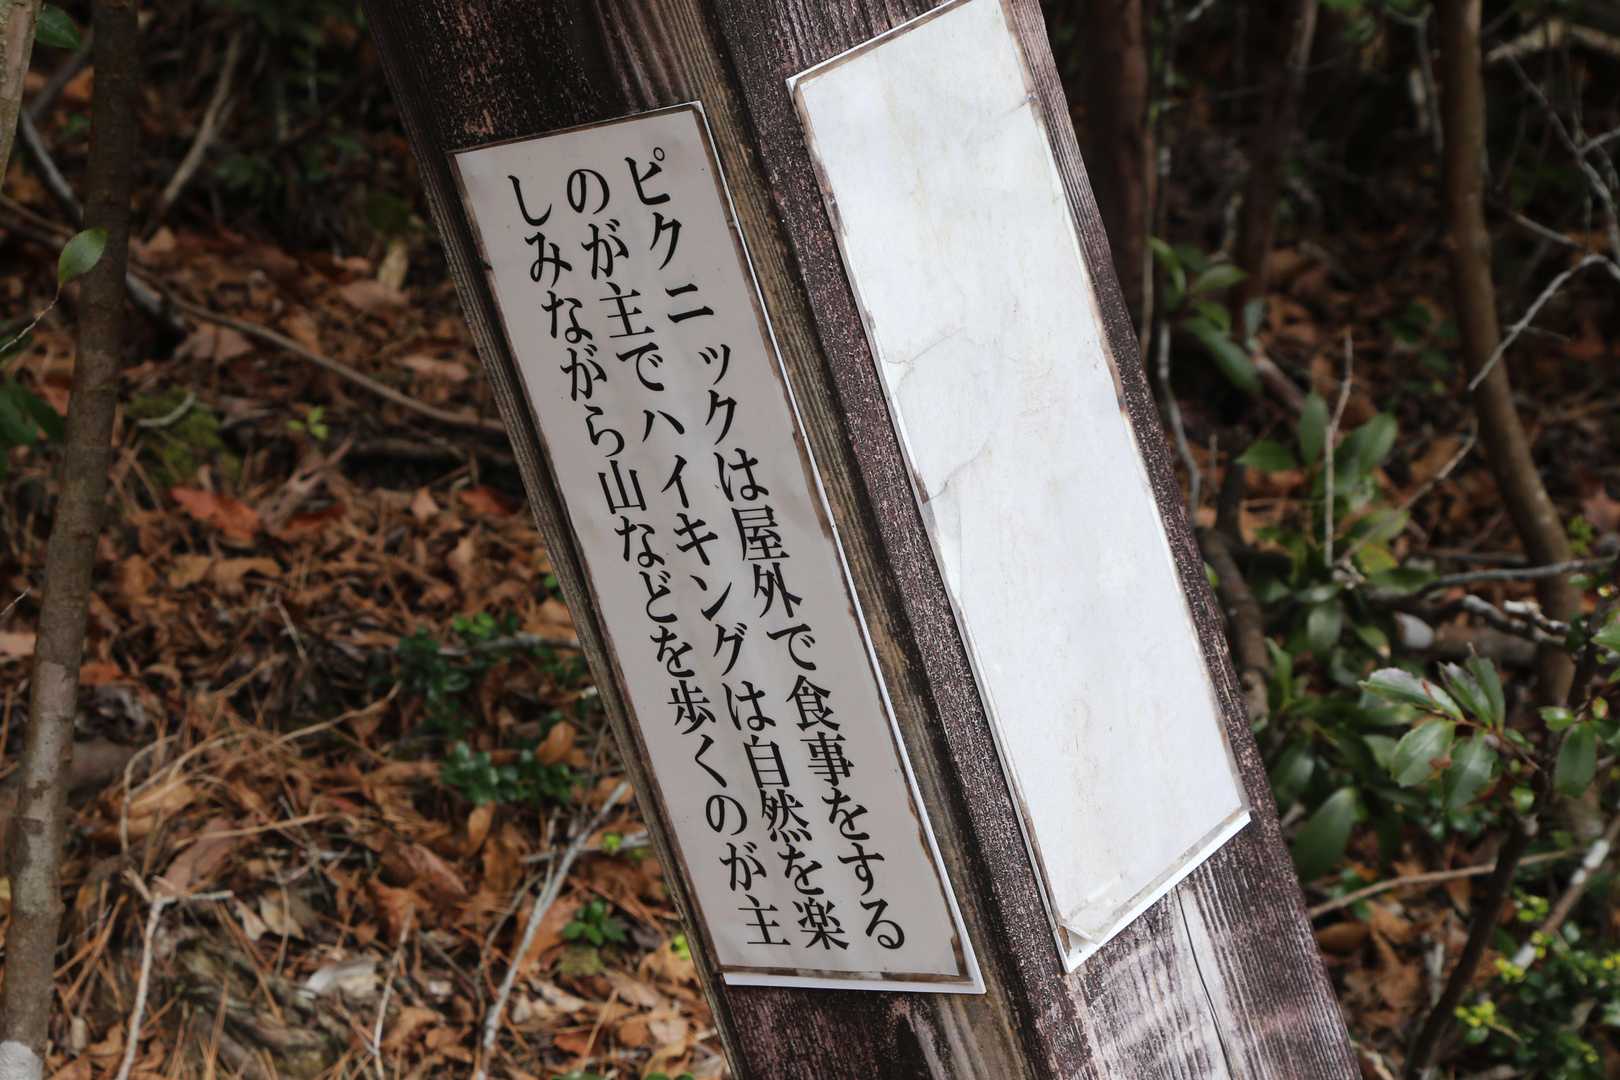 ピクニックは屋外で食事をする
のが主でハイキングは自然を楽
しみながら山などを歩くのが主